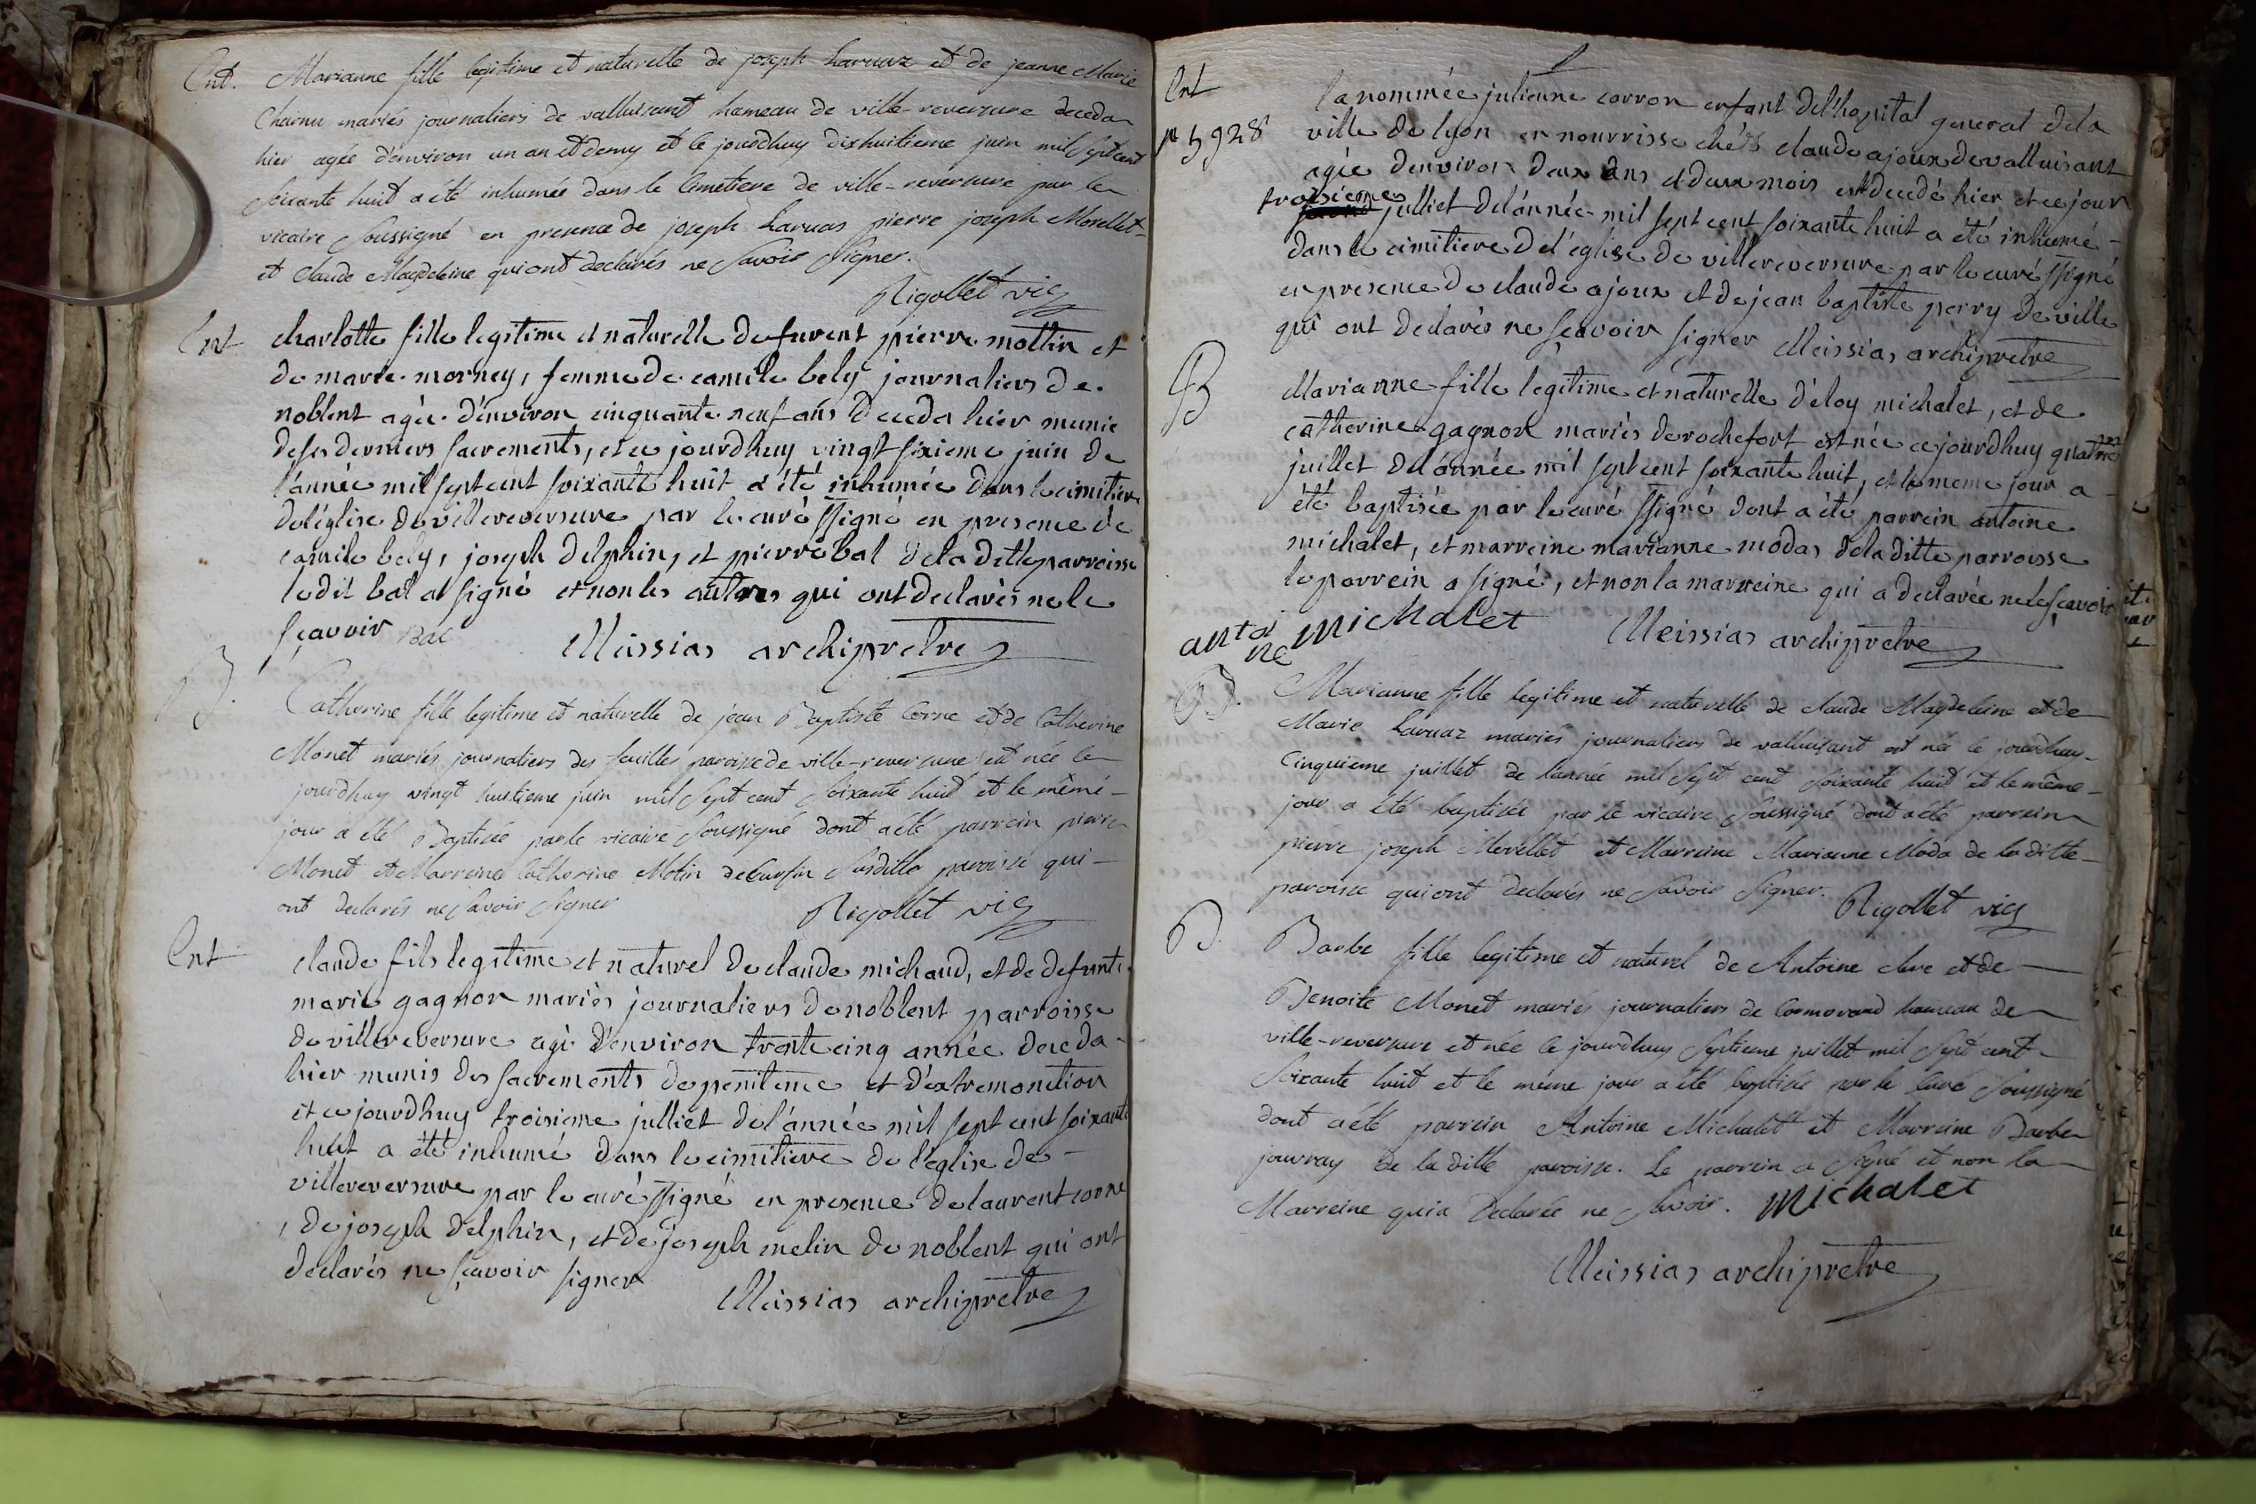 Ent. Marianne fille legitime et naturelle de joseph haruaz et de jeanne Marie
Charnu mariés journaliers de valluisant hameau de ville-reversure deceda
hier agée d'environ un an et demy et le jourdhuy dixhuitieme juin mil sept cent
soixante huit a été inhumée dans le Cimetiere de ville-reversure par le
vicaire soussigné en presence de joseph haruas pierre joseph Morellet
et claude Magdeleine qui ont declarés ne savoir signer.
Rigollet vic
Ent charlotte fille legitime et naturelle de furent pierre mottin et
de marie morney, femme de camile bely journaliers de
noblent agée d'environ cinquante neuf ans deceda hier munie
de ses derniers sacrements, et ce jourdhuy vingt sixieme juin de
l'année mil sept cent soixante huit a été inhumée dans le cimitiere
de l'église de villereversure par le curé ssigné en presence de
camile bely, joseph delphin, et pierre bal de la ditte parroisse
le dit bal a signé et non les autres qui ont declarés ne le
sçavoir Bal Meissias archiprêtre
B. Catherine fille legitime et naturelle de jean Baptiste Corne et de Catherine
Monet mariés journaliers des feuilles paroisse de ville-reversure est née le
jourdhuy vingt huitieme juin mil sept cent soixante huit et le même
jour a été Baptisée par le vicaire soussigné dont a été parrein pierre
Monet et Marreine Catherine Motin de susditte paroisse qui
ont declarés ne savoir signer Rigollet vic
Ent claude fils legitime et naturel de claude michaud, et de defunte
marie gagnon mariés journaliers de noblent parroisse
de villereversure agé d'environ trente cinq année deceda
hier munis des sacrements de penitence et d'extremonction
et ce jourdhuy troisieme julliet de l'année mil sept cent soixante
huit a été inhumé dans le cimitiere de l'eglise de
villereversure par le curé ssigné en presence de laurent corne
, de joseph delphin, et de joseph melin de noblent qui ont
declarés ne sçavoir signer Meissias archiprêtre
Ent la nommée julienne corron enfant de l'hopital general de la
n 5928 ville de lyon en nourrisse chés claude ajoux de valluisant
agée d'environ deux ans et deux mois est decedé hier et ce jour
troisieme julliet de l'année mil sept cent soixante huit a été inhumé
dans le cimitiere de l'église de villereversure par le curé ssigné
en presence de claude ajoux et de jean baptiste perry de ville
qui ont declarés ne sçavoir signer Meissias archiprêtre
B Marianne fille legitime et naturelle d'éloy michalet, et de
catherine gagnon mariés de rochefort est née ce jourdhuy quatrieme
juillet de l'année mil sept cent soixante huit, et le meme jour a
été baptisée par le curé ssigné dont a été parrein antoine
michalet, et marreine marianne modas de la ditte parroisse
le parrein a signé, et non la marreine qui a declarée ne le sçavoir
antoine michalet Meissias archiprêtre
B. Marianne fille legitime et naturelle de claude Magdeleine et de
Marie haruaz mariés journaliers de valluisant est née le jourdhuy
Cinquieme juillet de l'année mil sept cent soixante huit et le même
jour a été baptisée par le vicaire soussigné dont a été parrein
pierre joseph Morellet et Marreine Marianne Moda de la ditte
paroisse qui ont declarés ne savoir signer. Rigollet vic
B. Barbe fille legitime et naturel de Antoine et de
Benoite Monet mariés journaliers de Cormorand hameau de
ville-reversure et née le jourdhuy septieme juillet mil sept cent
soixante huit et le même jour a été baptisée par le Curé soussigné
dont a été parrein Antoine Michalet et Marreine Barbe
jouvray de la ditte paroisse. Le parrein a signé et non la
Marreine qui a declarée ne savoir. Michalet
Meissias archiprêtre